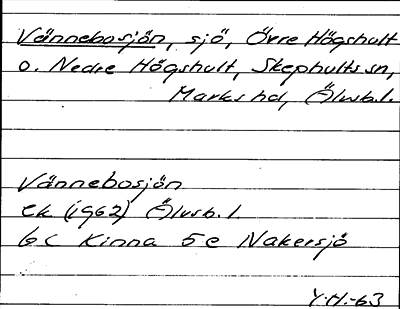 Vännebosjön, sjö, Övre Högshult
o. Nedre Högshult, Skephults sn,
Marks hd, Älvsb.l.
Vännebosjön
Ek (1962) Älvsb. l.
6C Kinna 5e Nakersjö
Y.H.-63